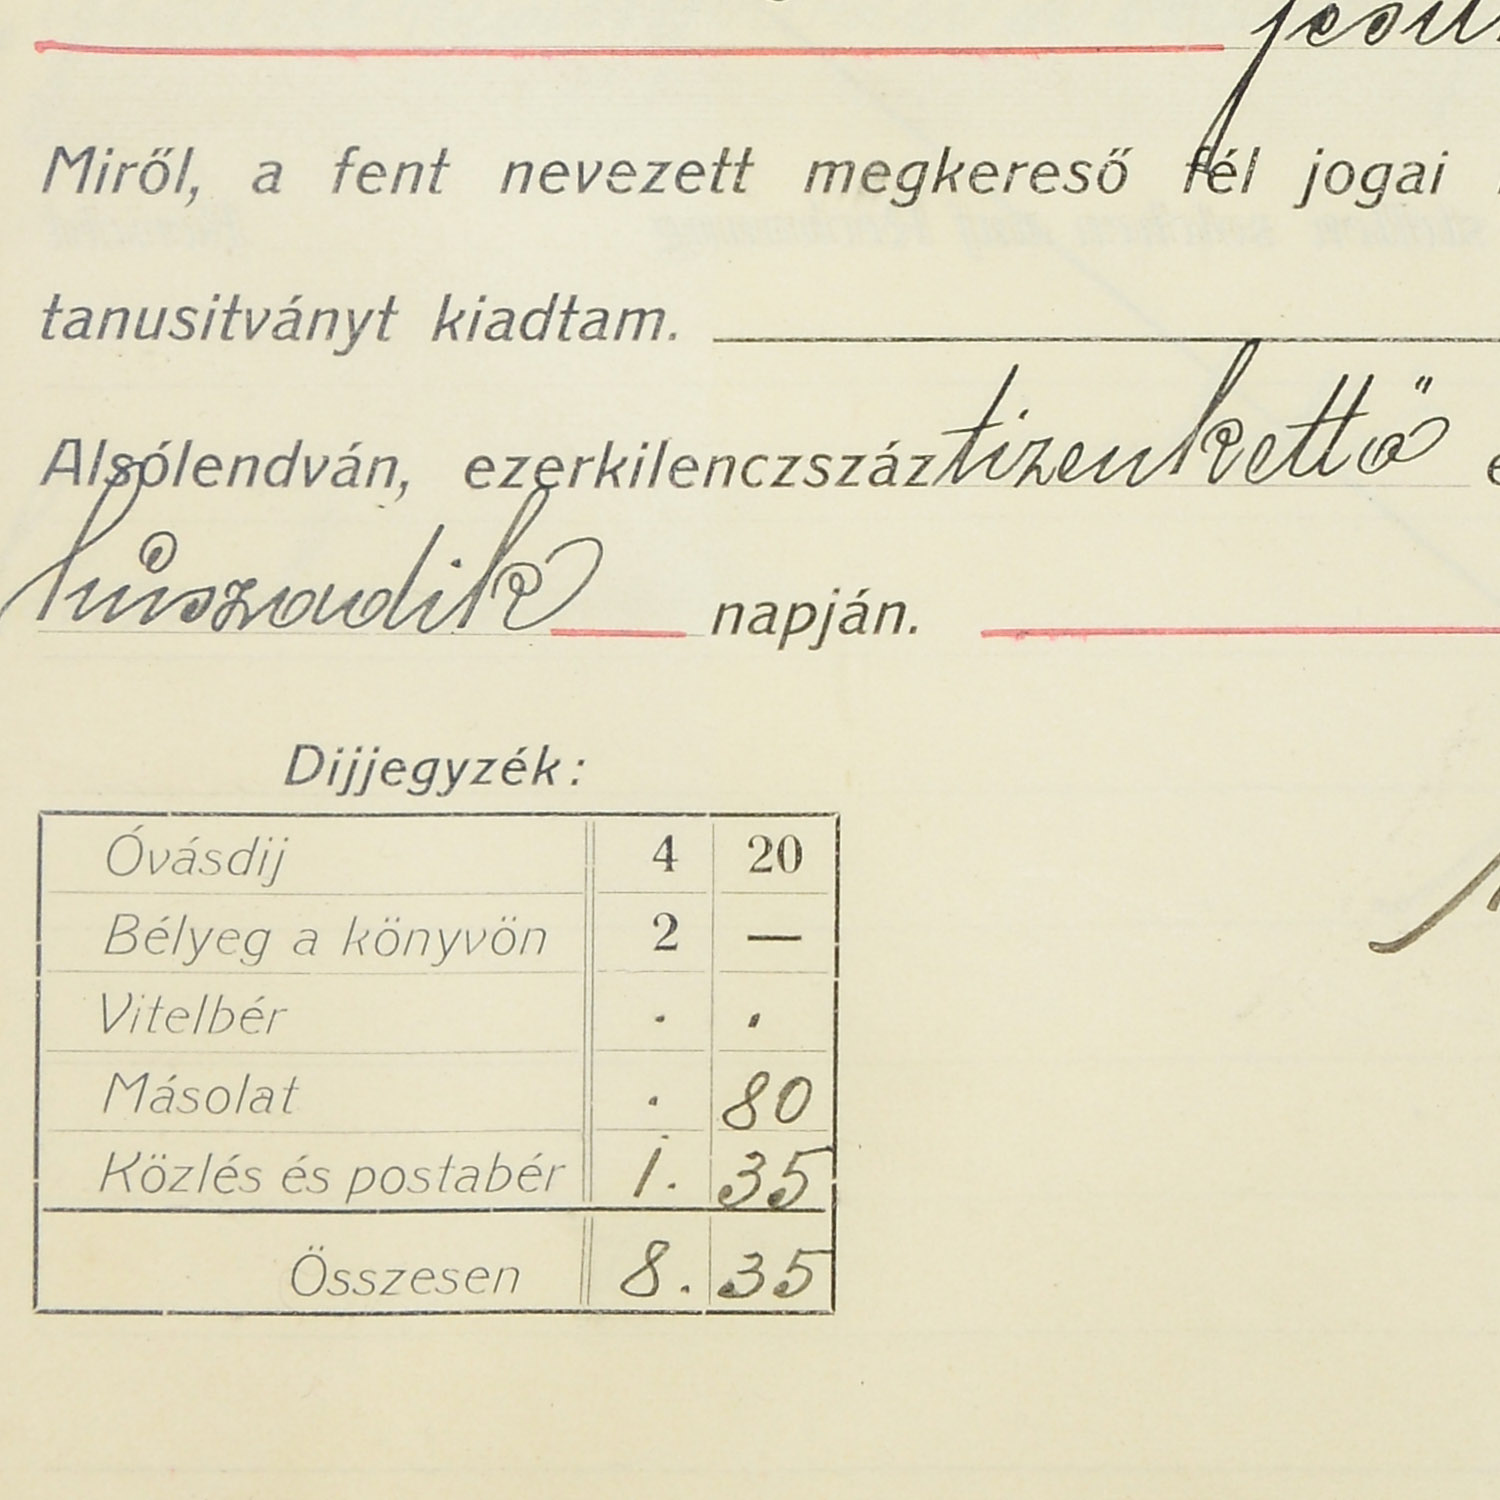 Miről, a fent nevezett megkereső fél jogai
tanusitványt kiadtam.
Alsólendván, ezerkilenczszáztizenkettő
húszadik napján.
Dijjegyzék:
Óvásdij 4 20
Bélyeg a könyvön 2 —
Vitelbér . .
Másolat . 80
Közlés és postabér 1. 35
Összesen 8. 35